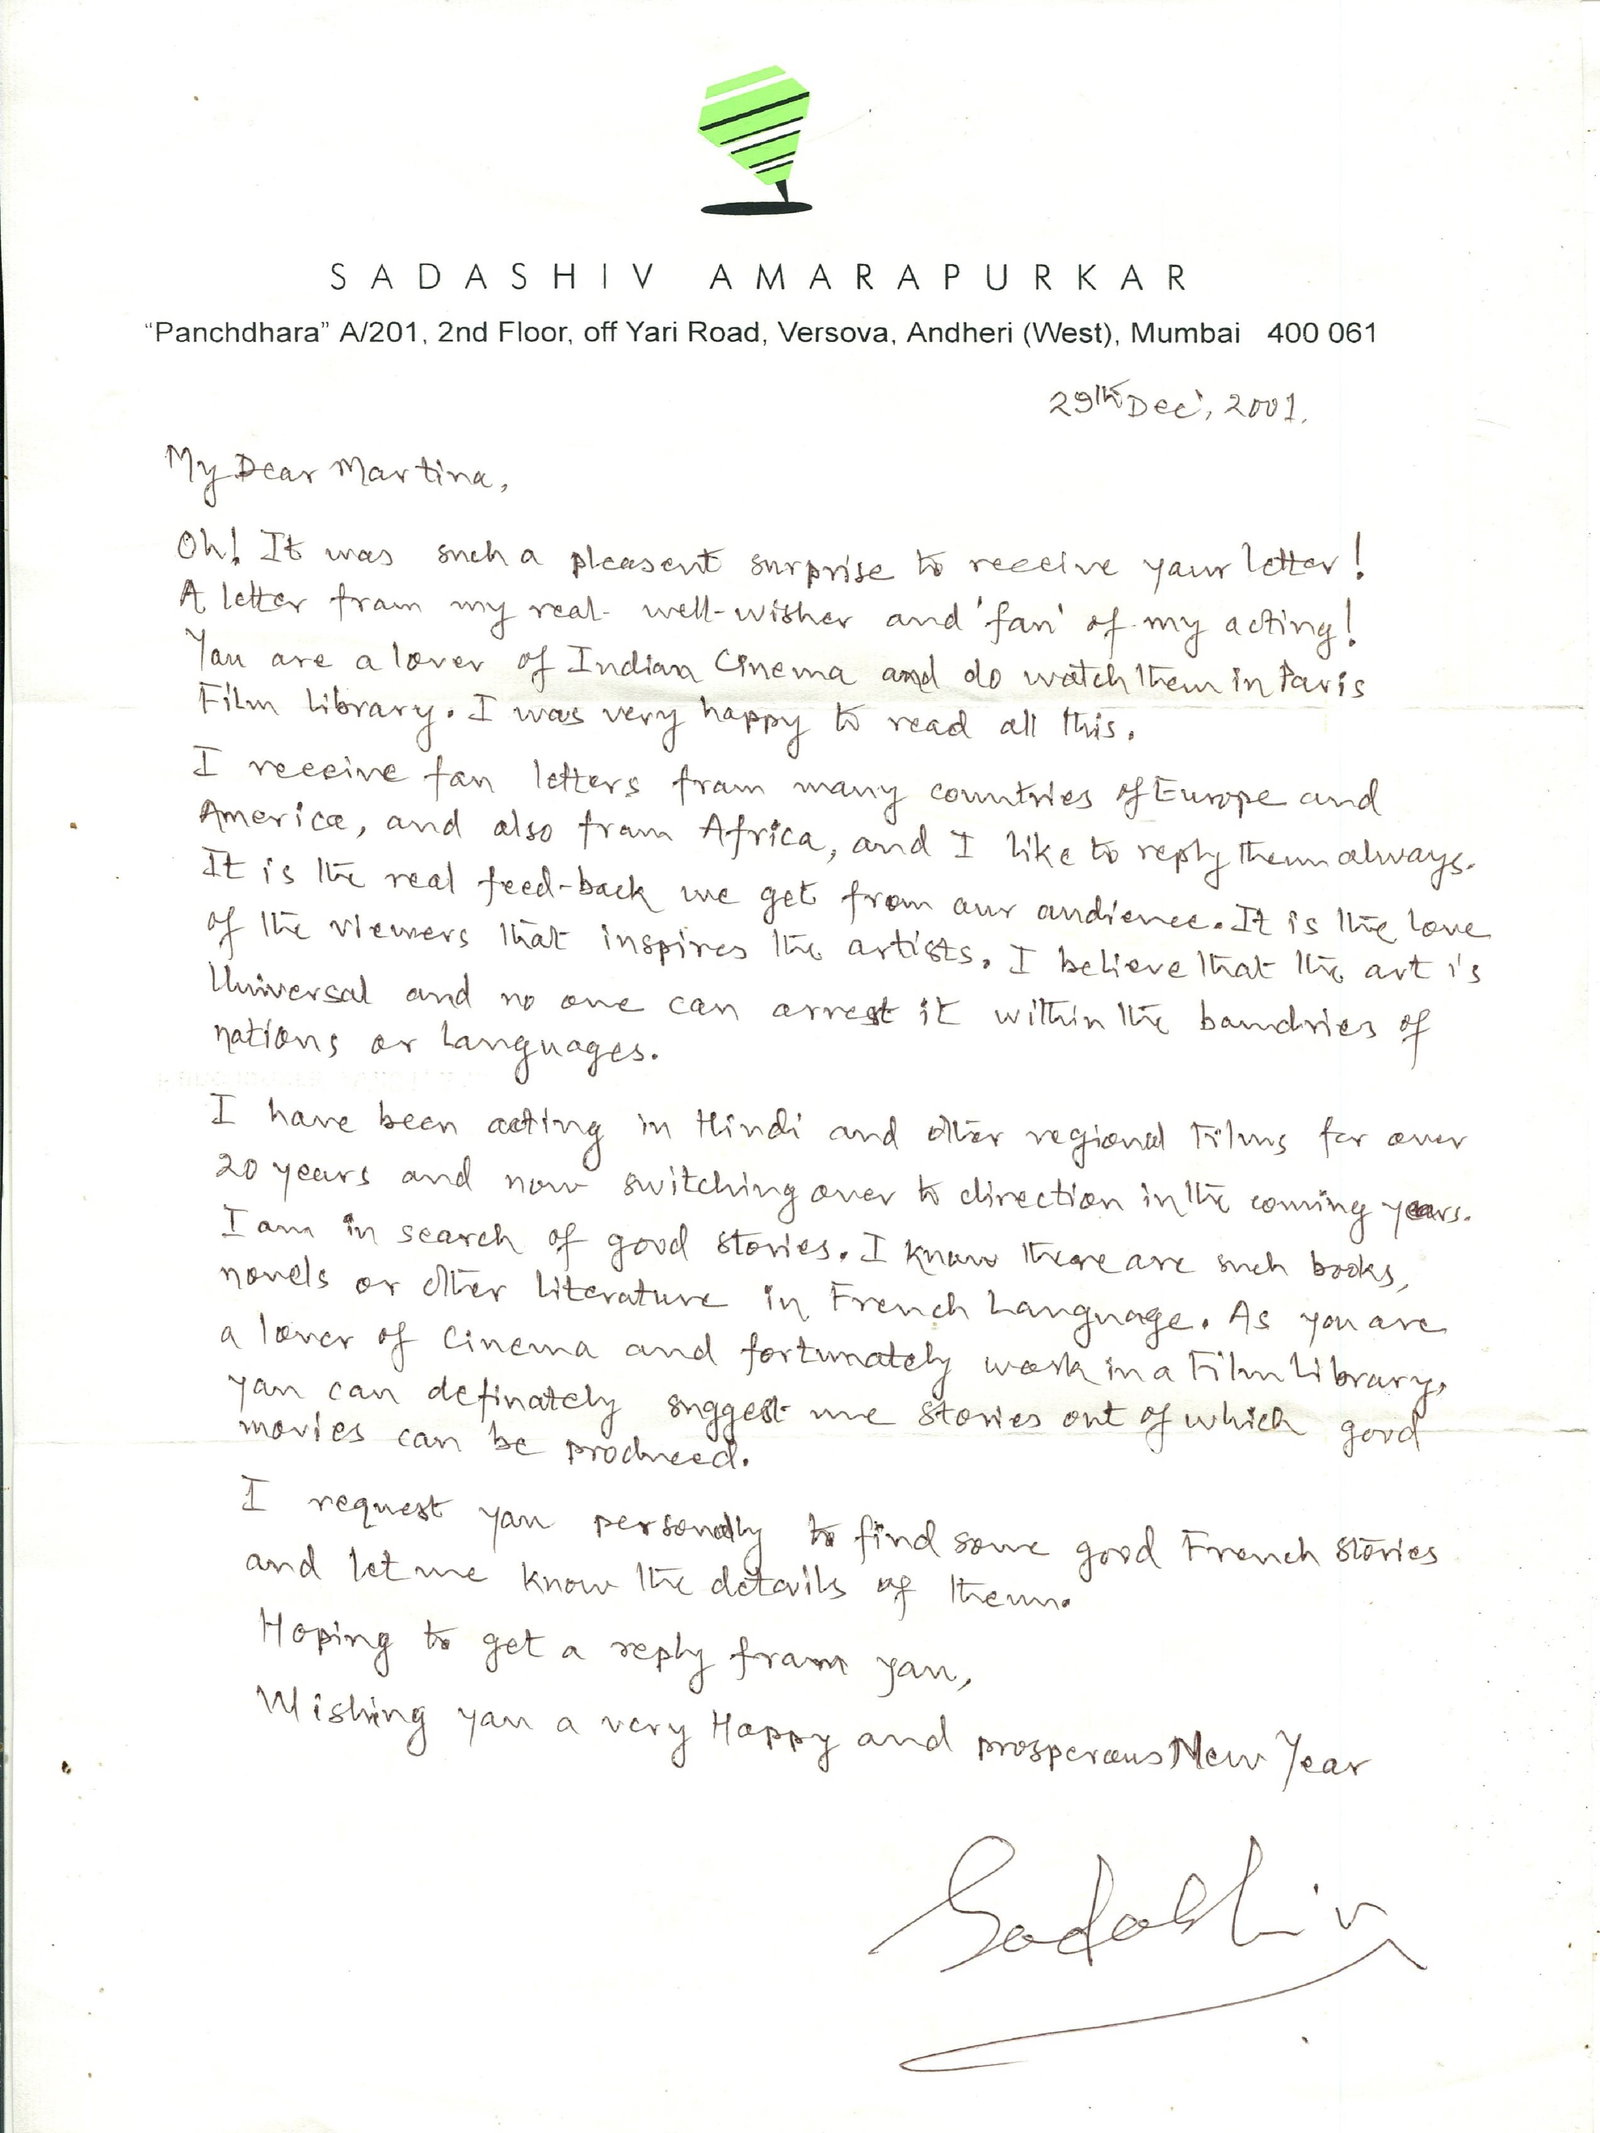 SADASHIV AMARAPURKAR
“Panchdhara” A/201, 2nd Floor, off Yari Road, Versova, Andheri (West), Mumbai 400 061
29th Dec', 2001.
My Dear Martina,
Oh! It was such a pleasent surprise to receive your letter!
A letter from my real well-wisher and 'fan' of my acting!
You are a lover of Indian Cinema and do watch them in Paris
Film Library. I was very happy to read all this.
I receive fan letters from many countries of Europe and
America, and also from Africa, and I like to reply them always.
It is the real feed-back we get from our audience. It is the love
of the viewers that inspires the artists. I believe that the art is
Universal and no one can arrest it within the boundries of
nations or Languages.
I have been acting in Hindi and other regional Films for over
20 years and now switching over to direction in the coming years.
I am in search of good stories. I know there are such books,
novels or other literature in French Language. As you are
a lover of Cinema and fortunately work in a Film Library,
you can definately suggest me stories out of which good
movies can be produced.
I request you personally to find some good French stories
and let me know the details of them.
Hoping to get a reply from you,
Wishing you a very Happy and prosperous New Year
Sadashiv